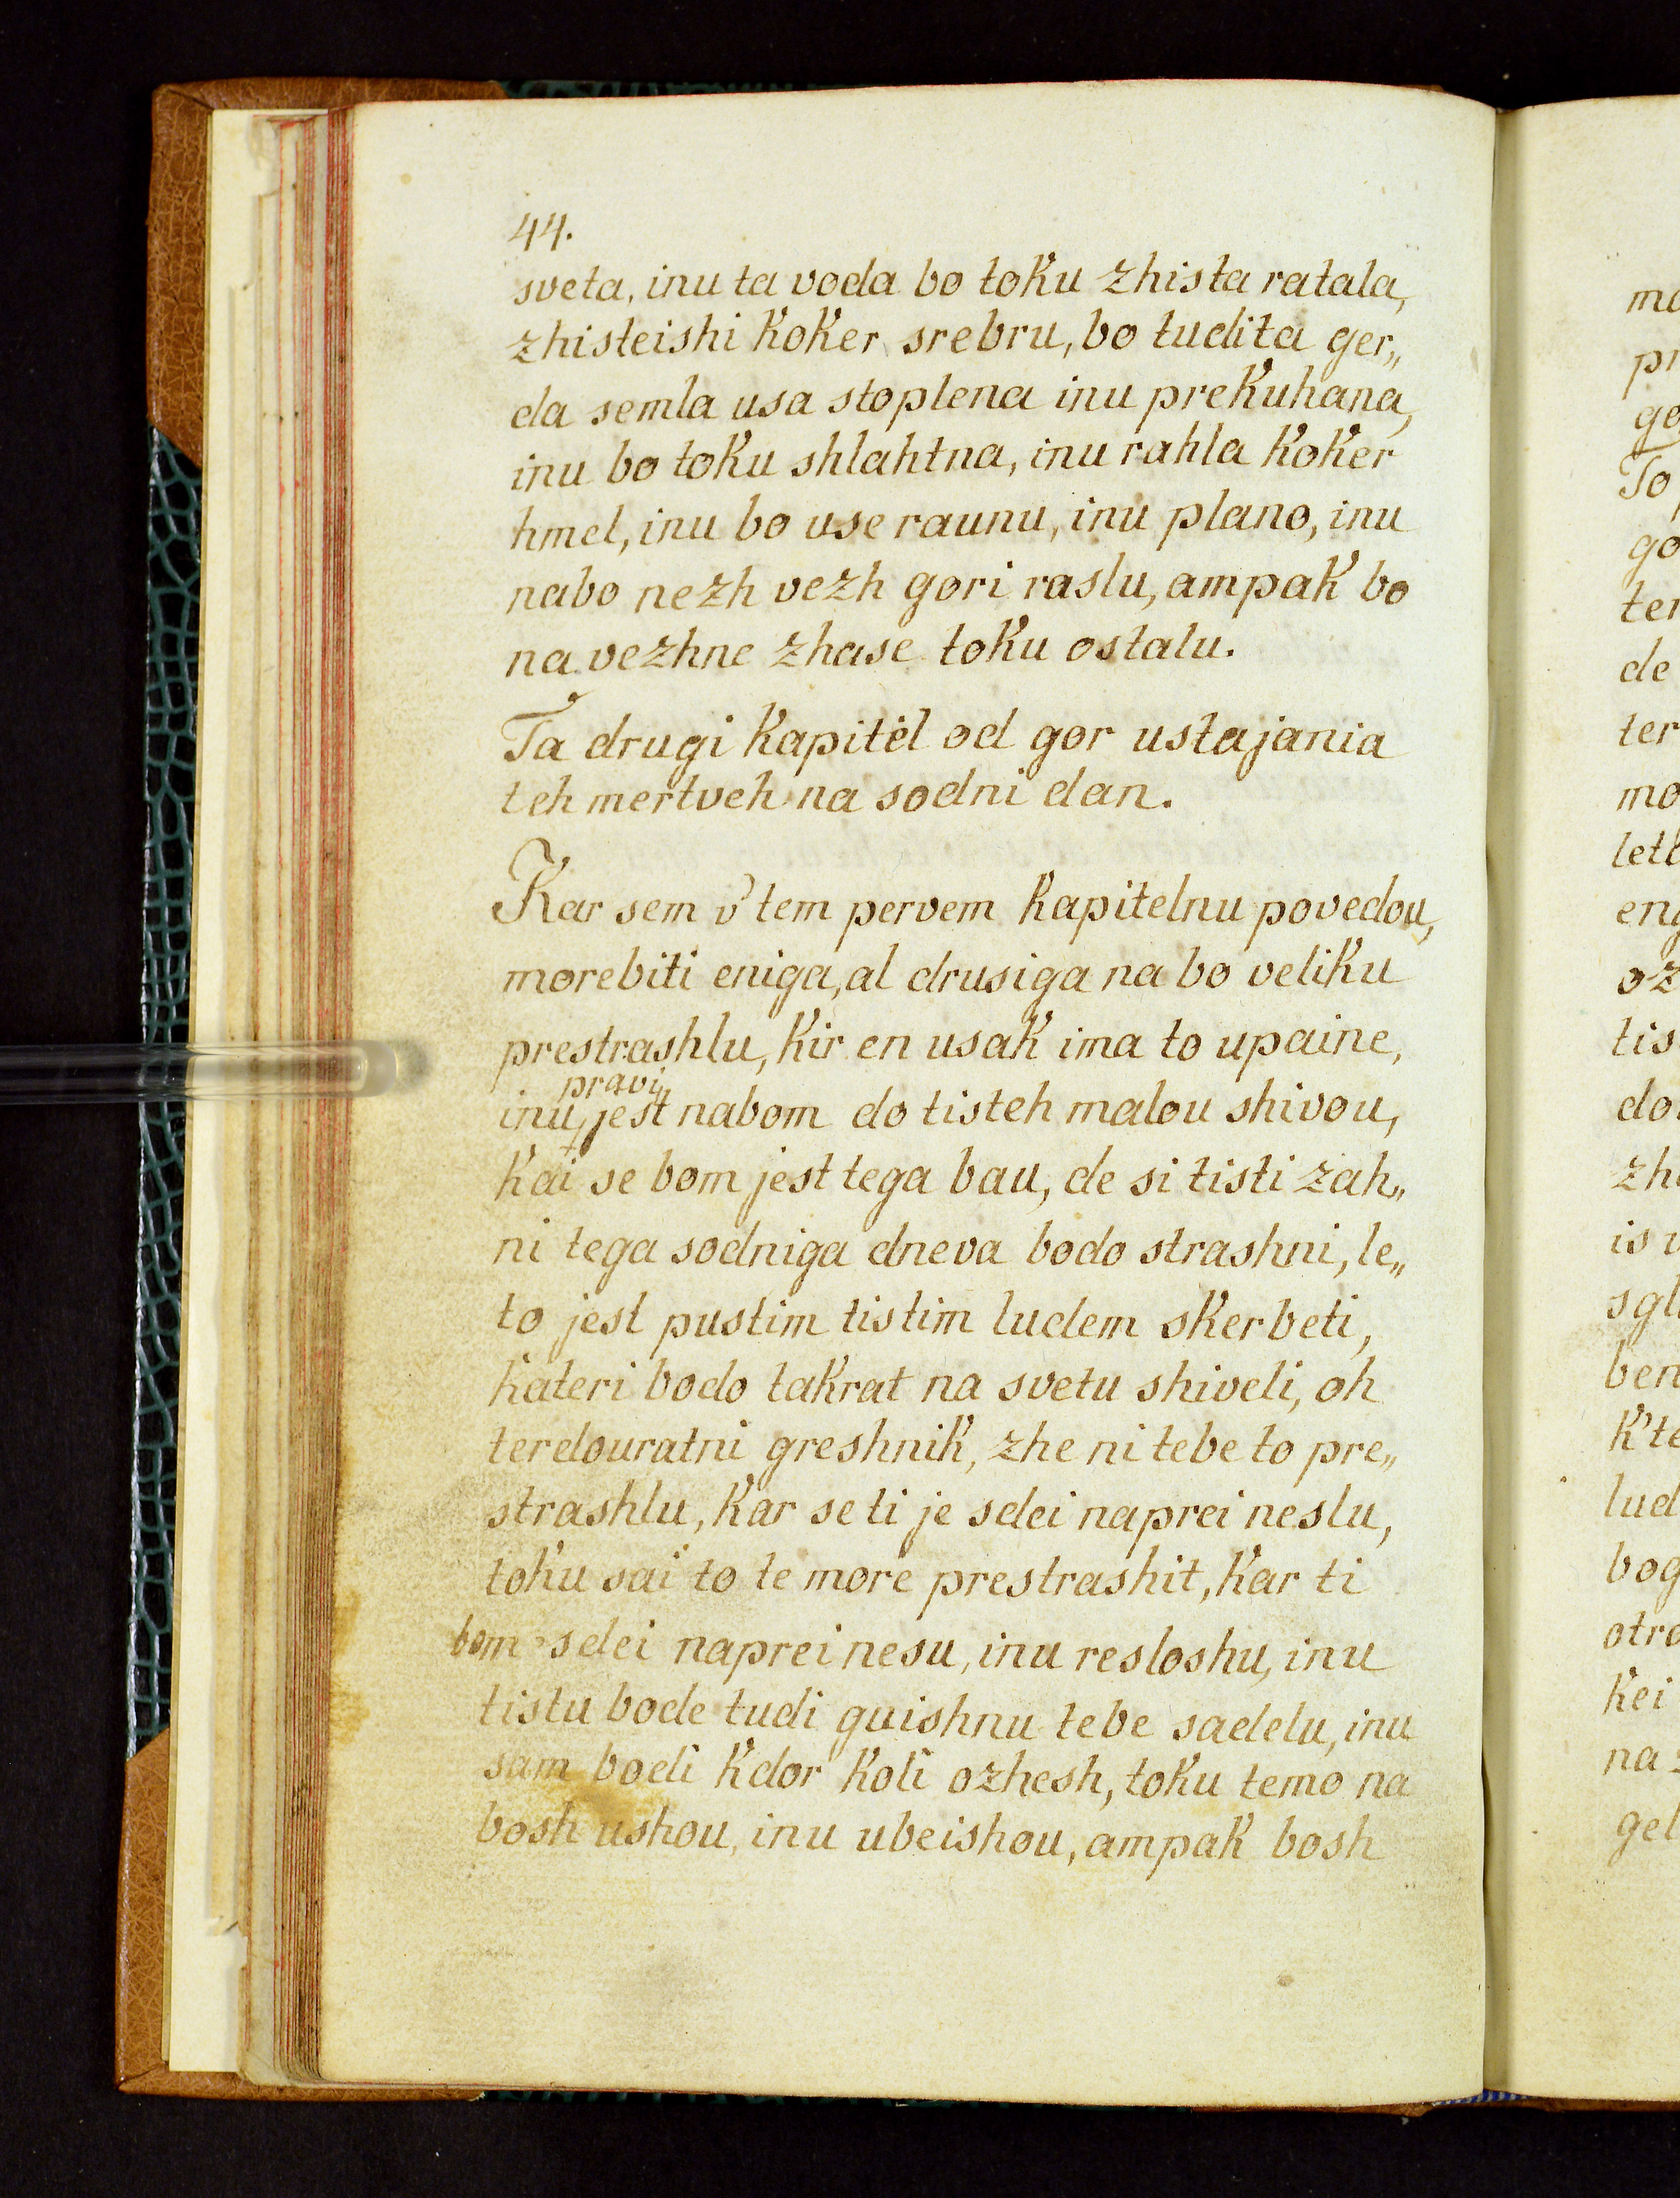 44.
sveta, inu ta voda bo toku zhista ratala,
zhisteishi koker srebru, bo tudi ta ger„
da semla usa stoplena inu prekuhana,
inu bo toku shlahtna, inu rahla koker
hmel, inu bo use raunu, inu plano, inu
nabo nezh vezh gori raslu, ampak bo
na vezhne zhase toku ostalu.
Ta drugi kapitèl od gor ustajania
teh mertveh na sodni dan.
Kar sem v' tem pervem kapitelnu povedou,
morebiti eniga, al drusiga na bo veliku
prestrashlu, kir en usak ima to upaine,
pravi,
inu, jest nabom do tisteh malou shivou,
kai se bom jest tega bau, de si tisti zah„
ni tega sodniga dneva bodo strashni, le„
to jest pustim tistim ludem skerbeti,
kateri bodo takrat na svetu shiveli, oh
terdouratni greshnik, zhe ni tebe to pre„
strashlu, kar se ti je sdei naprei neslu,
toku sai to te more prestrashit, kar ti
bom sdei naprei nesu, inu resloshu, inu
tistu bode tudi guishnu tebe sadelu, inu
sam bodi kdor koli ozhesh, toku temo na
bosh ushou, inu ubeishou, ampak bosh
ma
pr
go
To
go
ter
de
ter
mo
letb
eng
oz
tis
do
zh
is
sgl
ben
k'te
lud
bog
otro
kei
na
gel